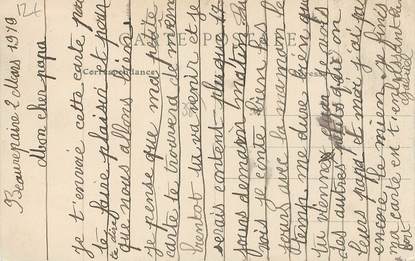 124
Beaurepaire 2 Mars 1919
Mon cher papa
je t'envoie cette carte pour
te faire plaisir et pour te dire
que nous allons bien
je pense que ma petite
carte te trouvera de même
bientot ta va venir et je
serais content
jours demain
vois je conte bien les
jours avec la maman le
temp. me dure bien que
tu vienne
des autres petits qui ont
leurs papa et moi j'ai pas
encore le mien je finis
ma carte en t'embrassant bien
fort
CARTE POSTALE
Correspondance